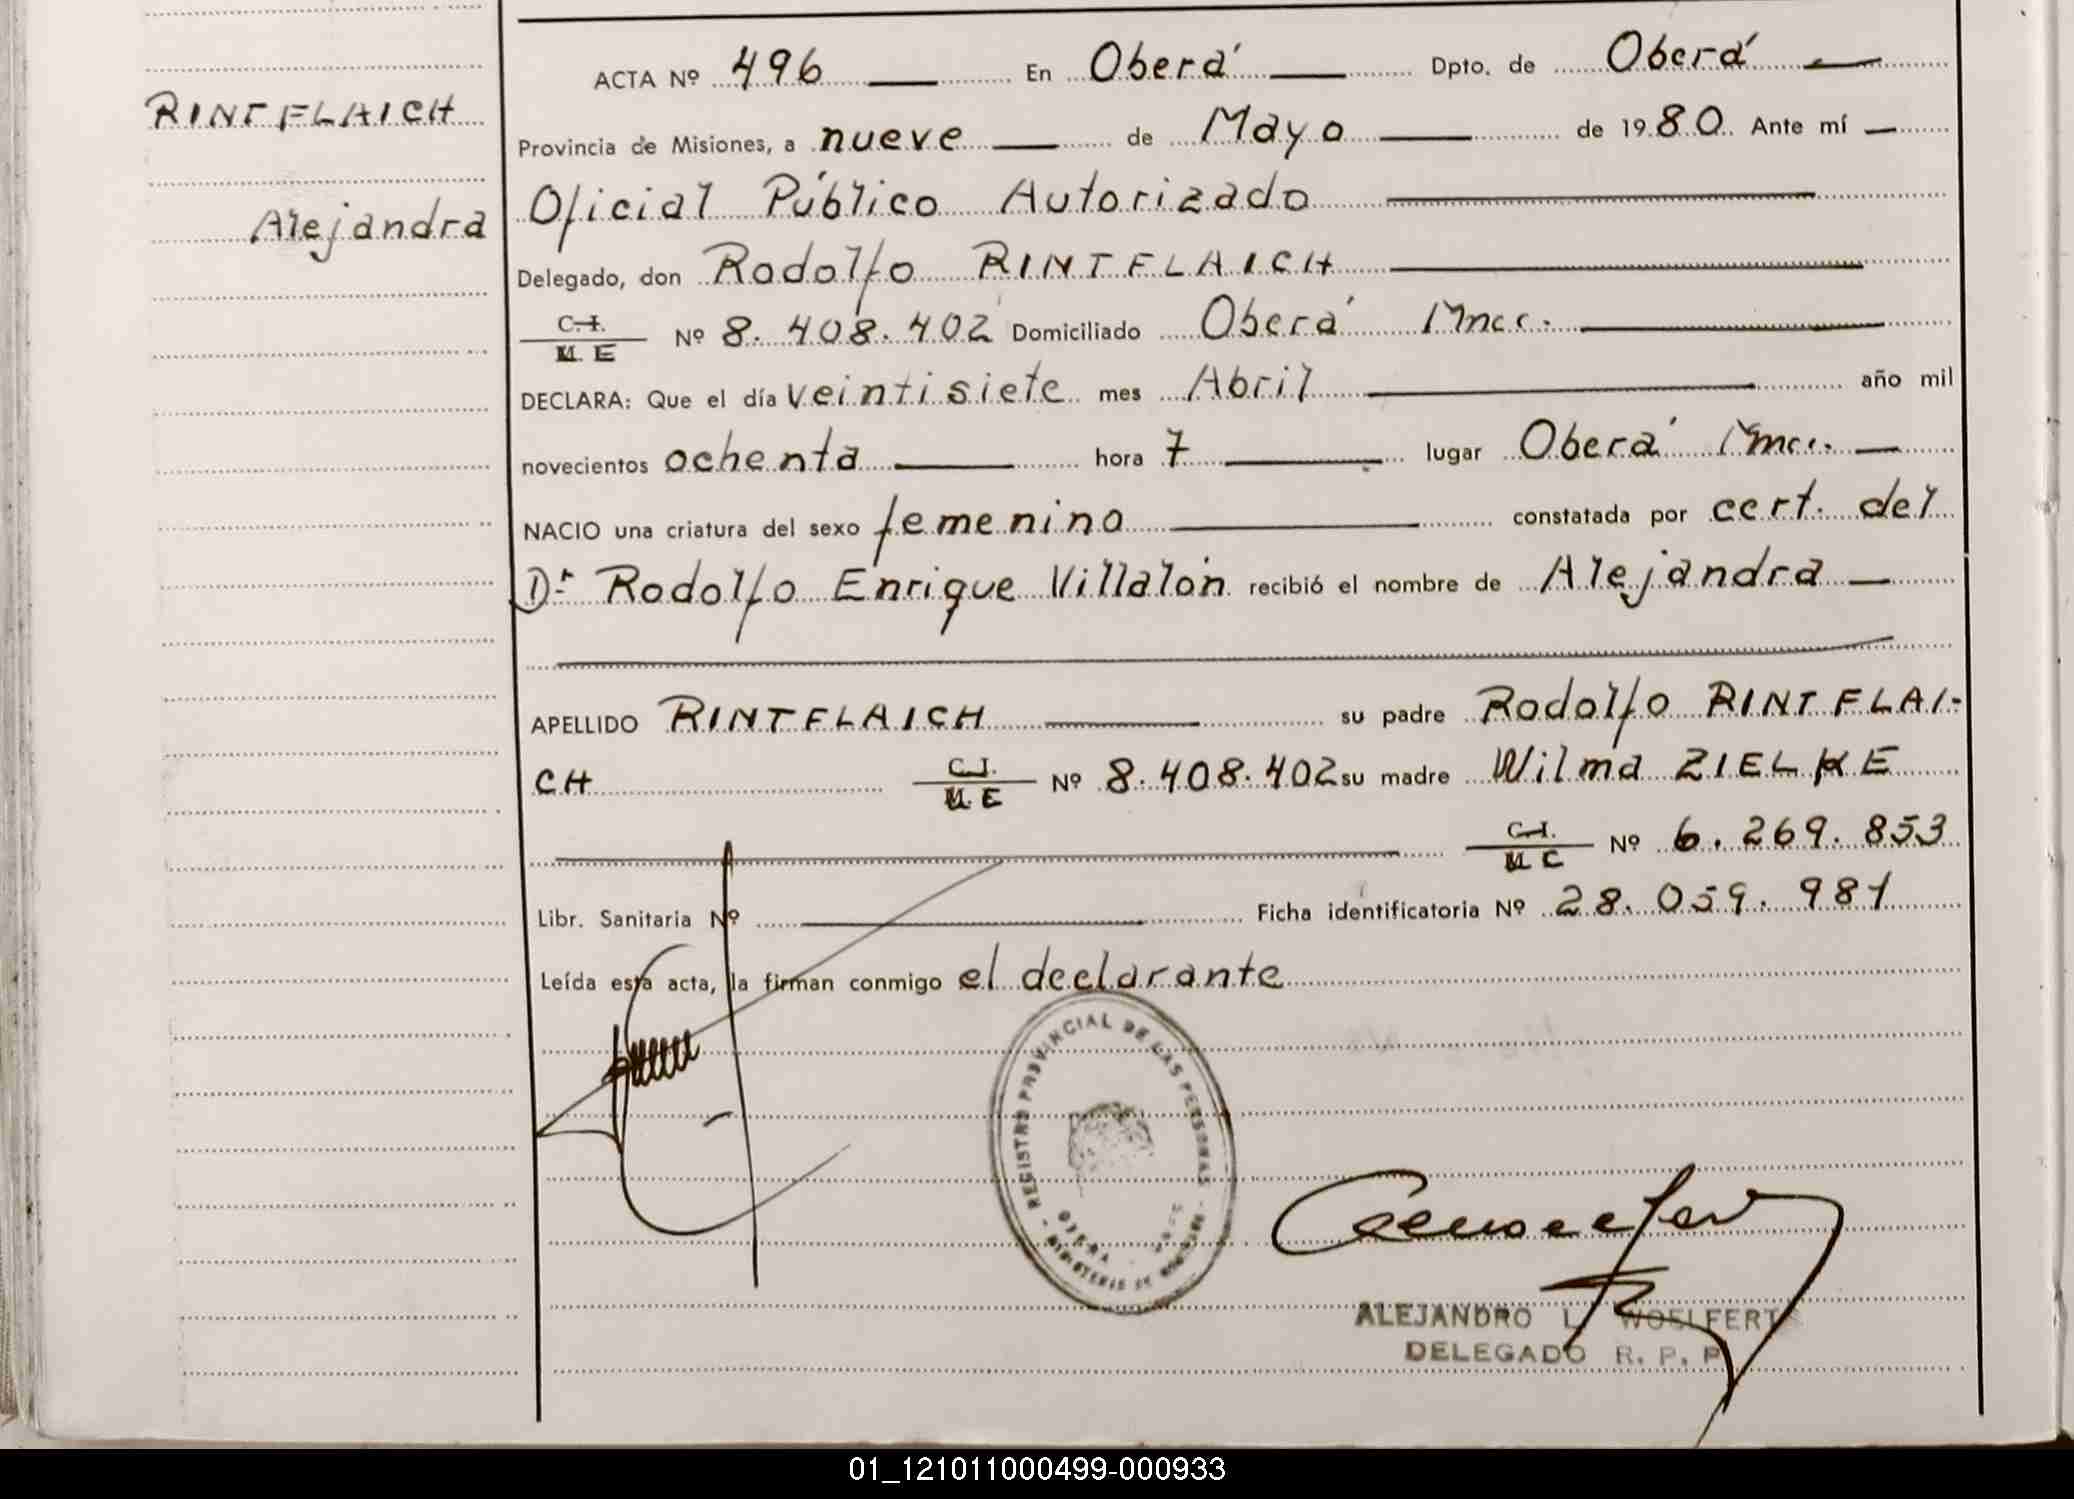 RINTFLAICH
Alejandra
ACTA Nº 496 En Oberá Dpto. de Oberá
Provincia de Misiones, a nueve de Mayo de 1980. Ante mí
Oficial Público Autorizado
Delegado, don Rodolfo RINTFLAICH
C.I. / M.E Nº 8.408.402 Domiciliado Oberá Mnes.
DECLARA: Que el día veintisiete mes Abril año mil
novecientos ochenta hora 7 lugar Oberá Mnes.
NACIO una criatura del sexo femenino constatada por cert. del
Dr Rodolfo Enrique Villalón recibió el nombre de Alejandra
APELLIDO RINTFLAICH su padre Rodolfo RINTFLAI-
CH C.I. / M.E Nº 8.408.402 su madre Wilma ZIELKE
C.I. / M C Nº 6.269.853
Libr. Sanitaria Nº Ficha identificatoria Nº 28.059.981
Leída esta acta, la firman conmigo el declarante
REGISTRO PROVINCIAL DE LAS PERSONAS
OBERA
ALEJANDRO L. WOELFERT
DELEGADO R. P. P.
01_121011000499-000933